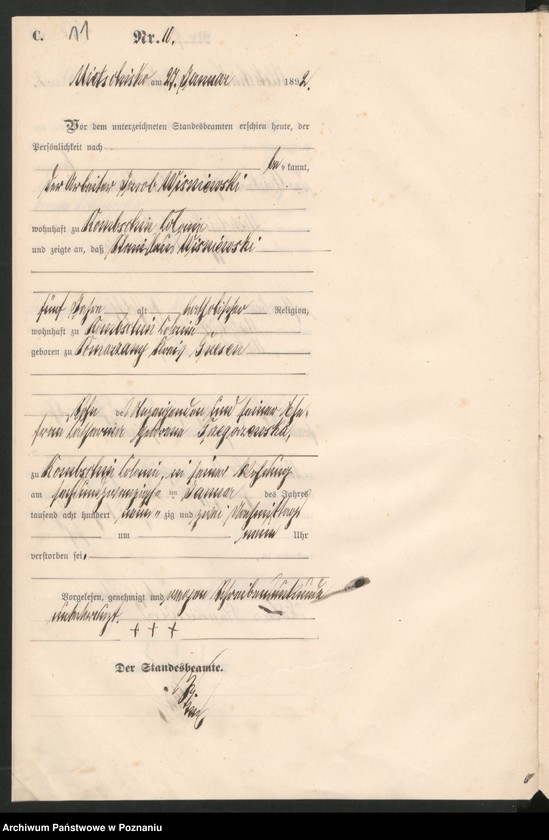 C. 11
Nr. 10.
am 27. Januar 1892.
Vor dem unterzeichneten Standesbeamten erschien heute, der
Persönlichkeit nach
be kannt,
der Arbeiter Jacob Wisniewski
wohnhaft zu Kombschin Colonie
und zeigte an, daß Stanislaus Wisniewski
fünf Jahre alt katholischer Religion,
wohnhaft zu Kombschin Colonie
geboren zu Kreis Gnesen
Sohn des Anzeigenden und seiner Ehe-
frau Catharina geborene
zu Kombschin Colonie, in seiner Wohnung
am sechsundzwanzigsten Januar des Jahres
tausend acht hundert neun zig und zwei Nachmittags
um neun Uhr
verstorben sei.
Vorgelesen, genehmigt und wegen Schreibensunkunde
unterkreuzt.
+ + +
Der Standesbeamte.
Archiwum Państwowe w Poznaniu